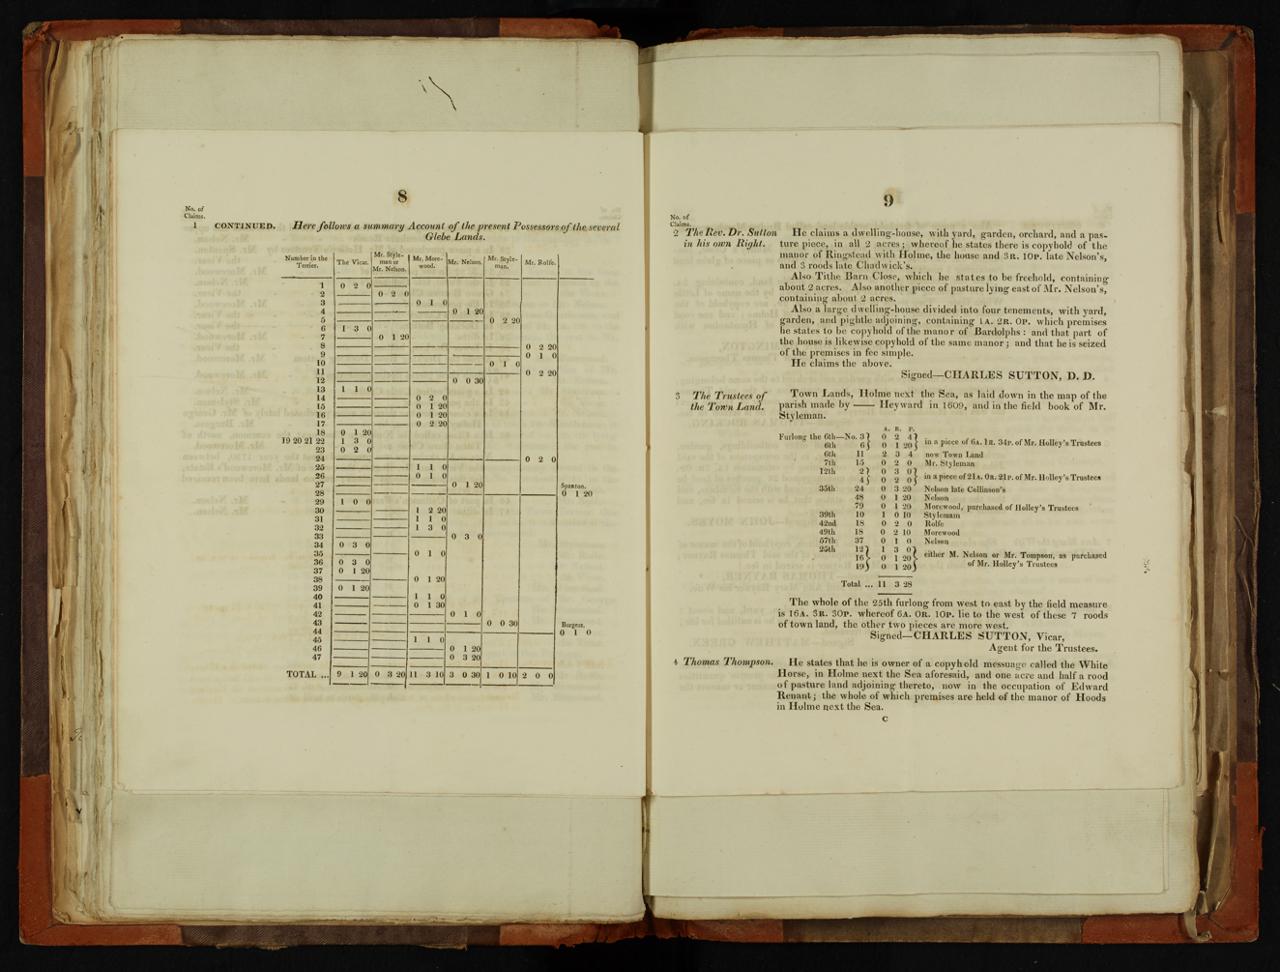 8
No. of
Claims.
1 CONTINUED. Here follows a summary Account of the present Possessors of the several
Glebe Lands.
Number in the Terrier. The Vicar. Mr. Style-man or Mr. Nelson. Mr. More-wood. Mr. Nelson. Mr. Style-man. Mr. Rolfe.
1 0 2 0
2 0 2 0
3 0 1 0
4 0 1 20
5 0 2 20
6 1 3 0
7 0 1 20
8 0 2 20
9 0 1 0
10 0 1 0
11 0 2 20
12 0 0 30
13 1 1 0
14 0 2 0
15 0 1 20
16 0 1 20
17 0 2 20
18 0 1 20
19 20 21 22 1 3 0
23 0 2 0
24 0 2 0
25 1 1 0
26 0 1 0
27 0 1 20 Spanton.
28 0 1 20
29 1 0 0
30 1 2 20
31 1 1 0
32 1 3 0
33 0 3 0
34 0 3 0
35 0 1 0
36 0 3 0
37 0 1 20
38 0 1 20
39 0 1 20
40 1 1 0
41 0 1 30
42 0 1 0
43 0 0 30 Burgess.
44 0 1 0
45 1 1 0
46 0 1 20
47 0 3 20
TOTAL ... 9 1 20 0 3 20 11 3 10 3 0 30 1 0 10 2 0 0
9
No. of
Claims.
2 The Rev. Dr. Sutton in his own Right.
He claims a dwelling-house, with yard, garden, orchard, and a pas-
ture piece, in all 2 acres; whereof he states there is copyhold of the
manor of Ringstead with Holme, the house and 3R. 10P. late Nelson's,
and 3 roods late Chadwick's.
Also Tithe Barn Close, which he states to be freehold, containing
about 2 acres. Also another piece of pasture lying east of Mr. Nelson's,
containing about 2 acres.
Also a large dwelling-house divided into four tenements, with yard,
garden, and pightle adjoining, containing 1A. 2R. 0P. which premises
he states to be copyhold of the manor of Bardolphs: and that part of
the house is likewise copyhold of the same manor; and that he is seized
of the premises in fee simple.
He claims the above.
Signed—CHARLES SUTTON, D. D.
3 The Trustees of the Town Land.
Town Lands, Holme next the Sea, as laid down in the map of the
parish made by —— Heyward in 1609, and in the field book of Mr.
Styleman.
A. R. P.
Furlong the 6th—No. 3 } 0 2 4 }
6th 6 } 0 1 20 } in a piece of 6A. 1R. 34P. of Mr. Holley's Trustees
6th 11 2 3 4 now Town Land
7th 15 0 2 0 Mr. Styleman
12th 2 } 0 3 0 }
4 } 0 2 0 } in a piece of 21A. 0R. 21P. of Mr. Holley's Trustees
35th 24 0 3 20 Nelson late Collinson's
48 0 1 20 Nelson
79 0 1 20 Morewood, purchased of Holley's Trustees
39th 10 1 0 10 Styleman
42nd 18 0 2 0 Rolfe
49th 18 0 2 10 Morewood
57th 37 0 1 0 Nelson
25th 12 } 1 3 0 }
16 } 0 1 20 } either M. Nelson or Mr. Tompson, as purchased
19 } 0 1 20 } of Mr. Holley's Trustees
Total ... 11 3 28
The whole of the 25th furlong from west to east by the field measure
is 16A. 3R. 30P. whereof 6A. 0R. 10P. lie to the west of these 7 roods
of town land, the other two pieces are more west.
Signed—CHARLES SUTTON, Vicar,
Agent for the Trustees.
4 Thomas Thompson.
He states that he is owner of a copyhold messuage called the White
Horse, in Holme next the Sea aforesaid, and one acre and half a rood
of pasture land adjoining thereto, now in the occupation of Edward
Renant; the whole of which premises are held of the manor of Hoods
in Holme next the Sea.
C